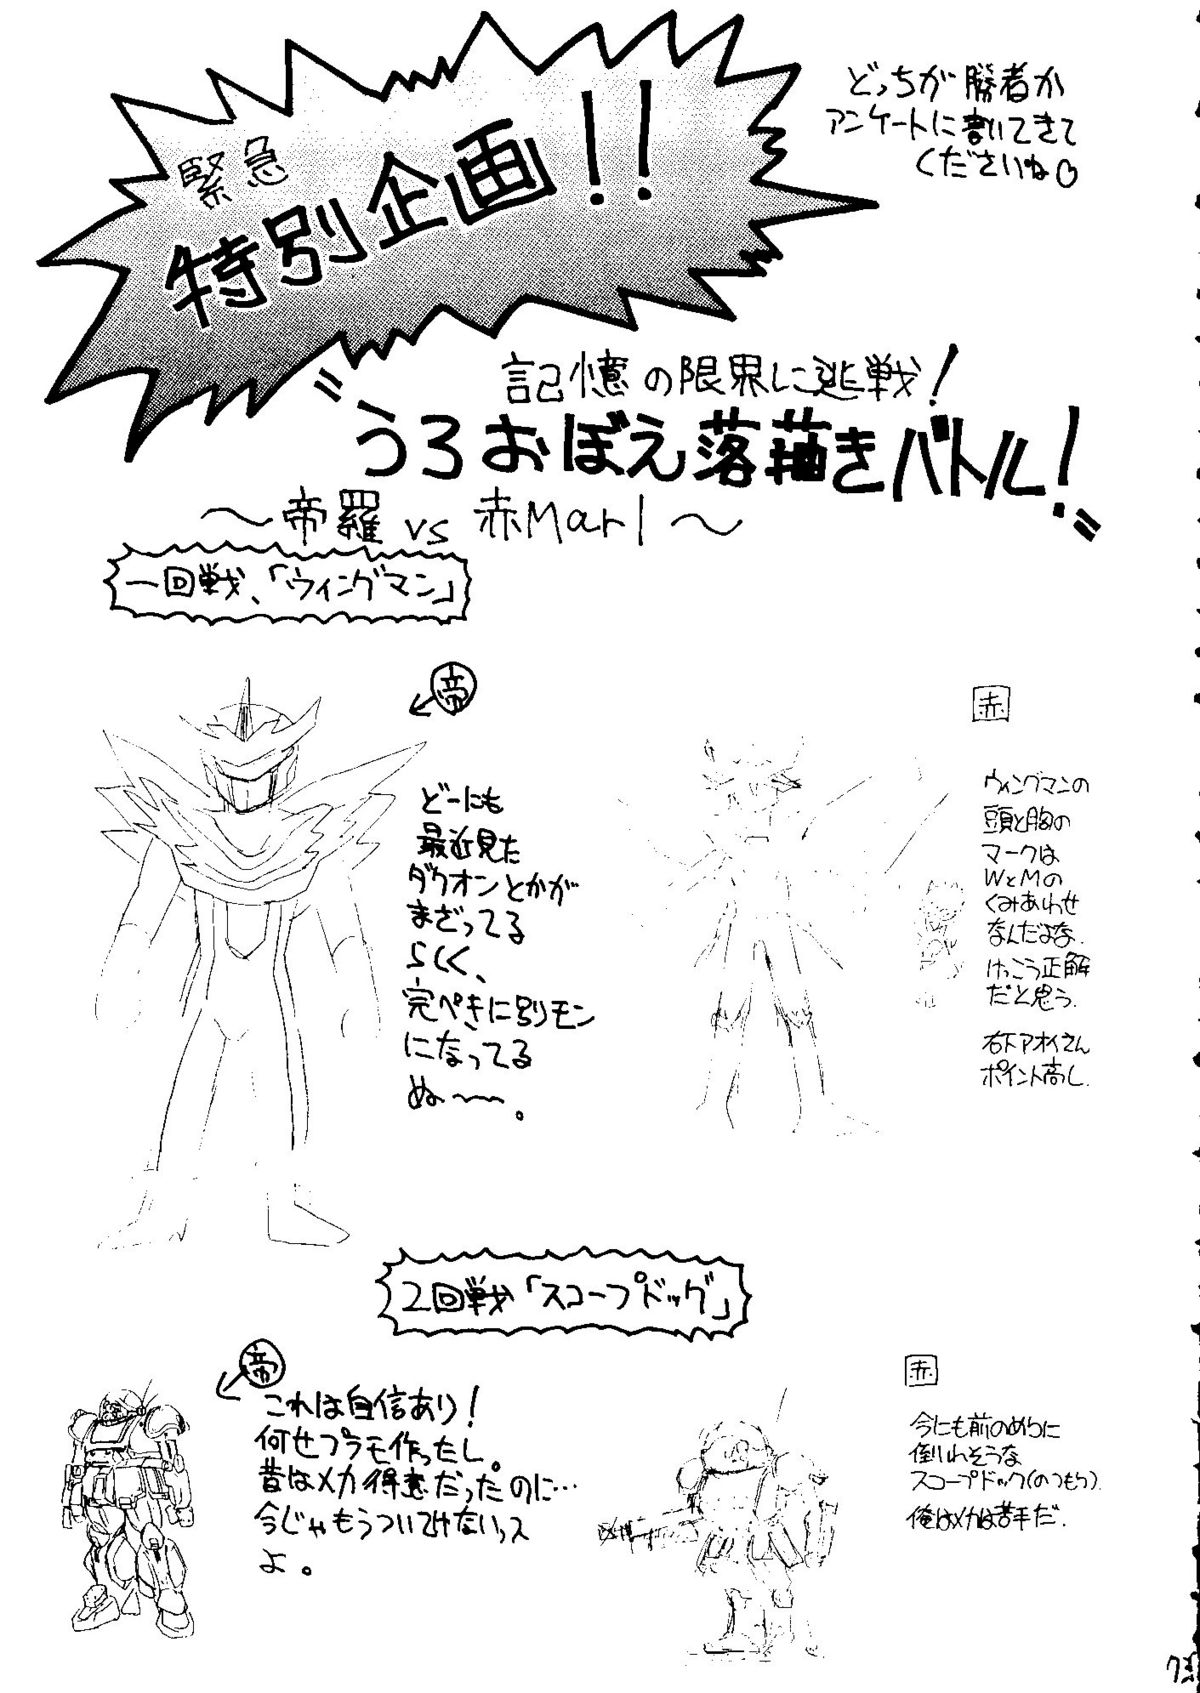 緊急
特別企画!!
どっちが勝者か
アンケートに書いてきて
くださいね♡
記憶の限界に挑戦!
"うろおぼえ落描きバトル!"
〜帝羅vs赤Marl〜
一回戦、「ウィングマン」
帝
どーにも
最近見た
ダグオンとかが
まざってる
らしく、
完ぺきに別モン
になってる
ぬ〜〜。
赤
ウィングマンの
頭と胸の
マークは
WとMの
くみあわせ
なんだよな.
けっこう正解
だと思う.
右下アオイさん
ポイント高し.
2回戦「スコープドッグ」
帝
これは自信あり!
何せプラモ作ったし。
昔はメカ得意だったのに…
今じゃもうついてけないっス
よ。
赤
今にも前のめりに
倒れそうな
スコープドック(のつもり).
俺はメカは苦手だ.
73